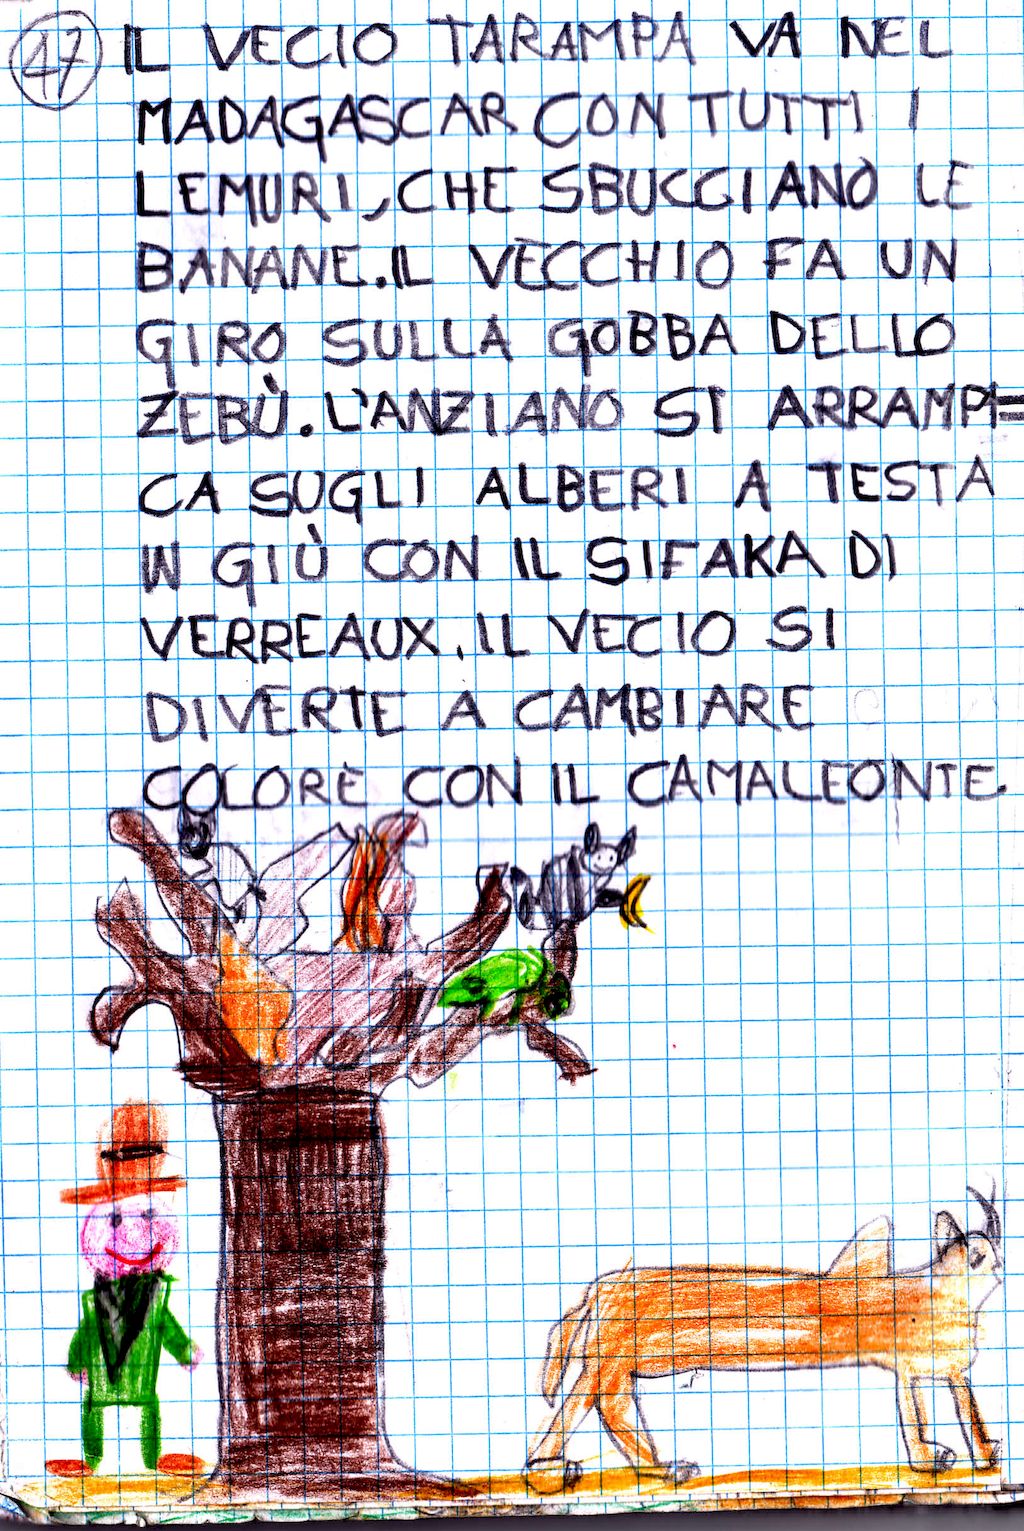 17 IL VECIO TARAMPA VA NEL
MADAGASCAR CON TUTTI I
LEMURI, CHE SBUCCIANO LE
BANANE. IL VECCHIO FA UN
GIRO SULLA GOBBA DELLO
ZEBÙ. L'ANZIANO SI ARRAMPI=
CA SUGLI ALBERI A TESTA
IN GIÙ CON IL SIFAKA DI
VERREAUX. IL VECIO SI
DIVERTE A CAMBIARE
COLORE CON IL CAMALEONTE.